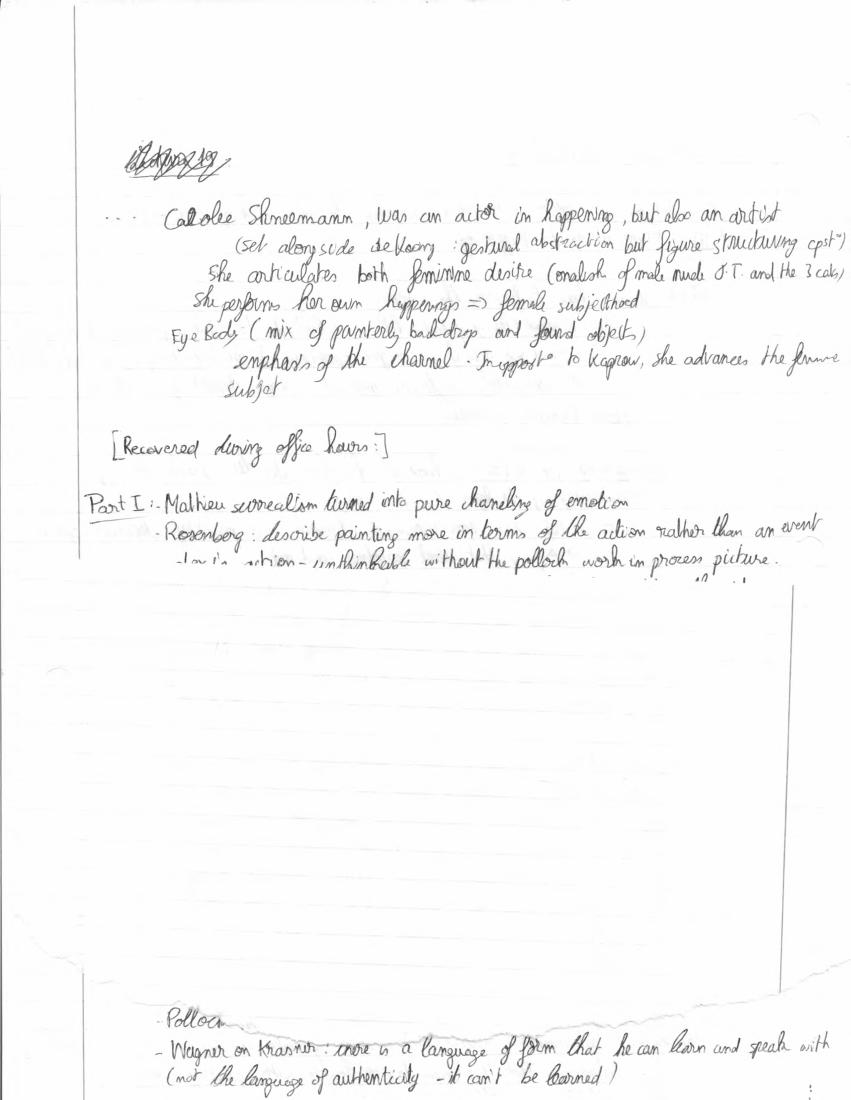 ... Carolee Shneemann, was an actor in happening, but also an artist
(set alongside deKoong : gestural abstraction but figure structuring cpst°)
She articulates both feminine desire (of male nude J.T. and the 3 cats)
She performs her own happenings => female subjecthood
Eye Body (mix of painterly backdrop and found objects)
emphasis of the charnel. In oppost° to Kaprow, she advances the femme
subjet
[Recovered during office hours:]
Part I:- Mathieu surrealism turned into pure chaneling of emotion
- Rosenberg : describe painting more in terms of the action rather than an event
action - unthinkable without the pollock work in process picture.
- Polloc
- Wagner on Krasner : there is a language of form that he can learn and speak with
(not the language of authenticity - it can't be learned)